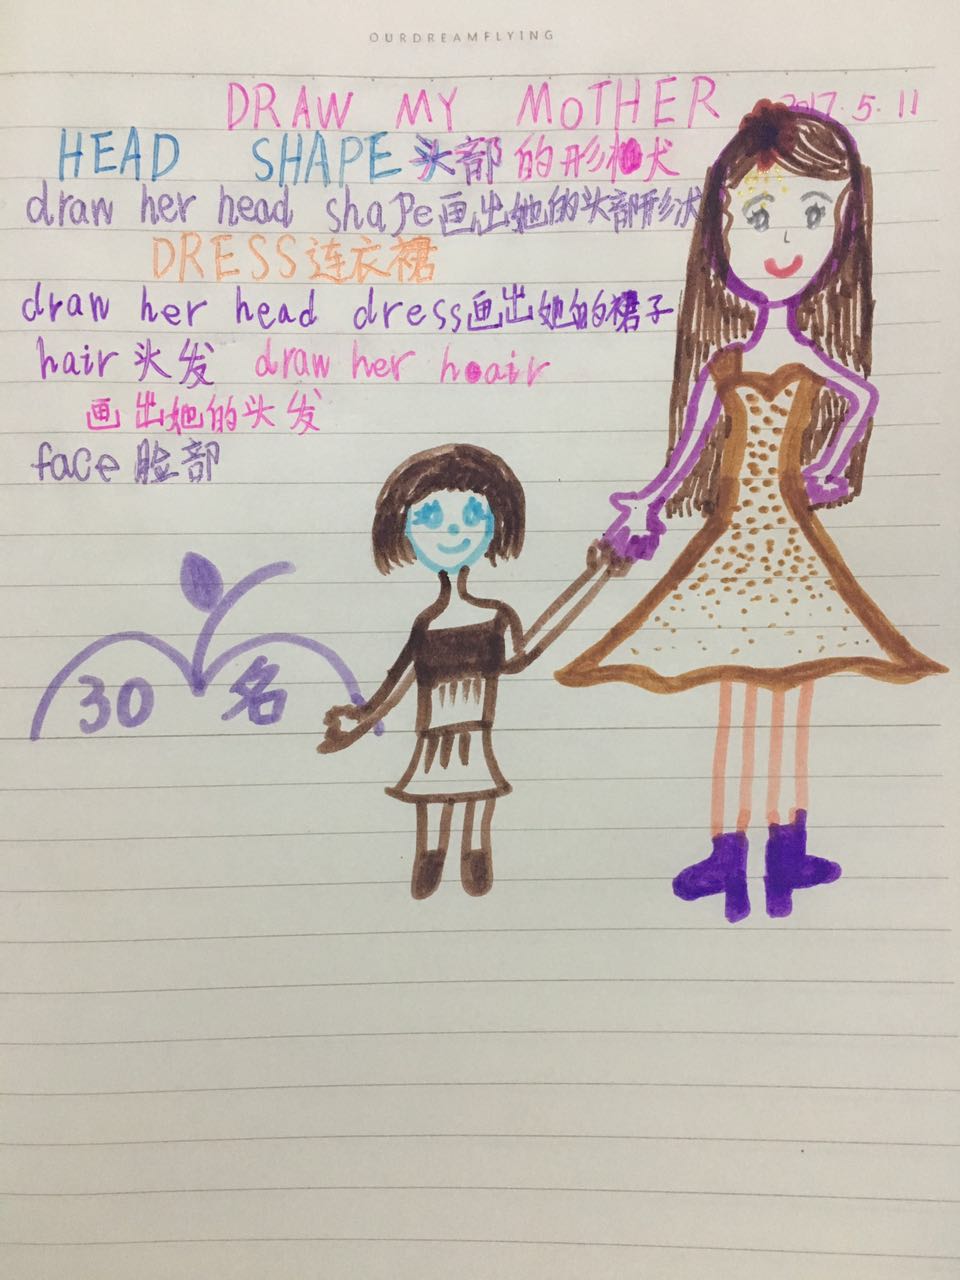 OURDREAMFLYING
DRAW MY MOTHER 2017.5.11
HEAD SHAPE 头部的形状
draw her head shape 画出她的头部形状
DRESS 连衣裙
draw her head dress 画出她的裙子
hair 头发 draw her hair
画出她的头发
face 脸部
30 名